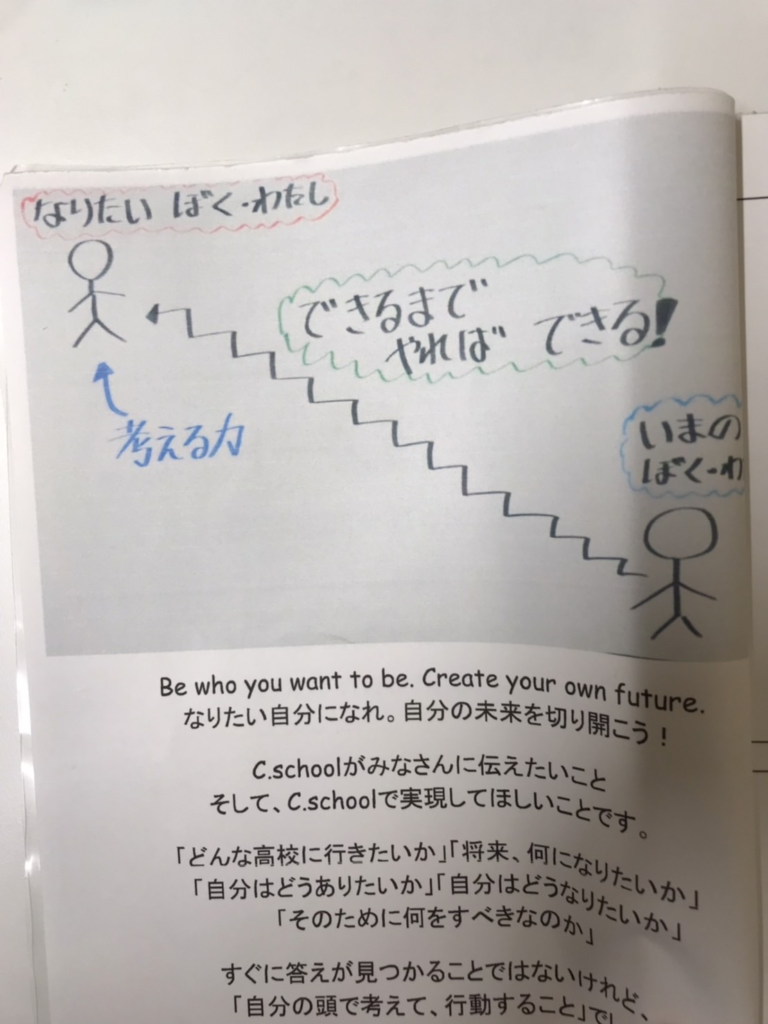 なりたい ぼく・わたし
できるまで
やれば できる!
考える力
いまの
ぼく・わ
Be who you want to be. Create your own future.
なりたい自分になれ。自分の未来を切り開こう！
C.schoolがみなさんに伝えたいこと
そして、C.schoolで実現してほしいことです。
「どんな高校に行きたいか」「将来、何になりたいか」
「自分はどうありたいか」「自分はどうなりたいか」
「そのために何をすべきなのか」
すぐに答えが見つかることではないけれど、
「自分の頭で考えて、行動すること」で